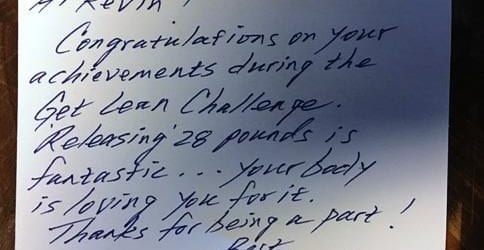 Hi Kevin!
Congratulations on your
achievements during the
Get Lean Challenge.
'Releasing' 28 pounds is
fantastic... your body
is loving you for it.
Thanks for being a part!
Best